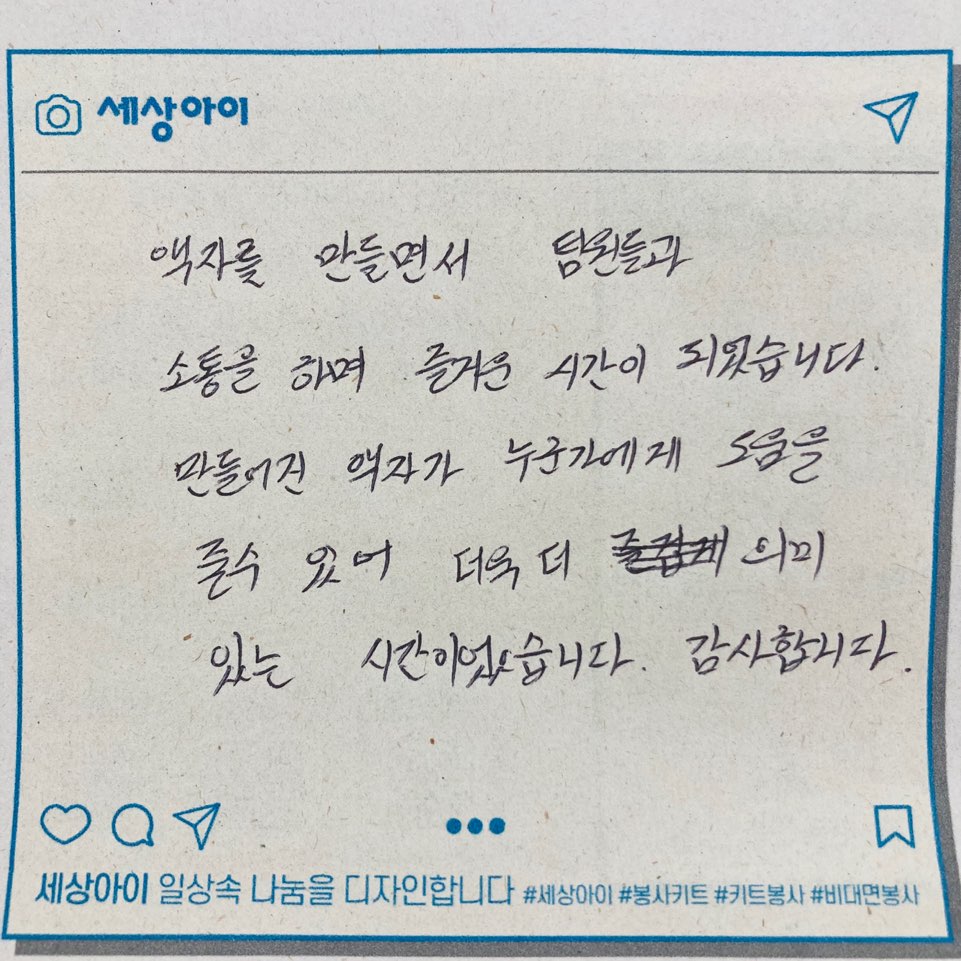 세상아이
액자를 만들면서 팀원들과
소통을 하며 즐거운 시간이 되었습니다.
만들어진 액자가 누군가에게 도움을
줄수 있어 더욱 더 즐겁게 의미
있는 시간이었습니다. 감사합니다.
세상아이 일상속 나눔을 디자인합니다 #세상아이 #봉사키트 #키트봉사 #비대면봉사